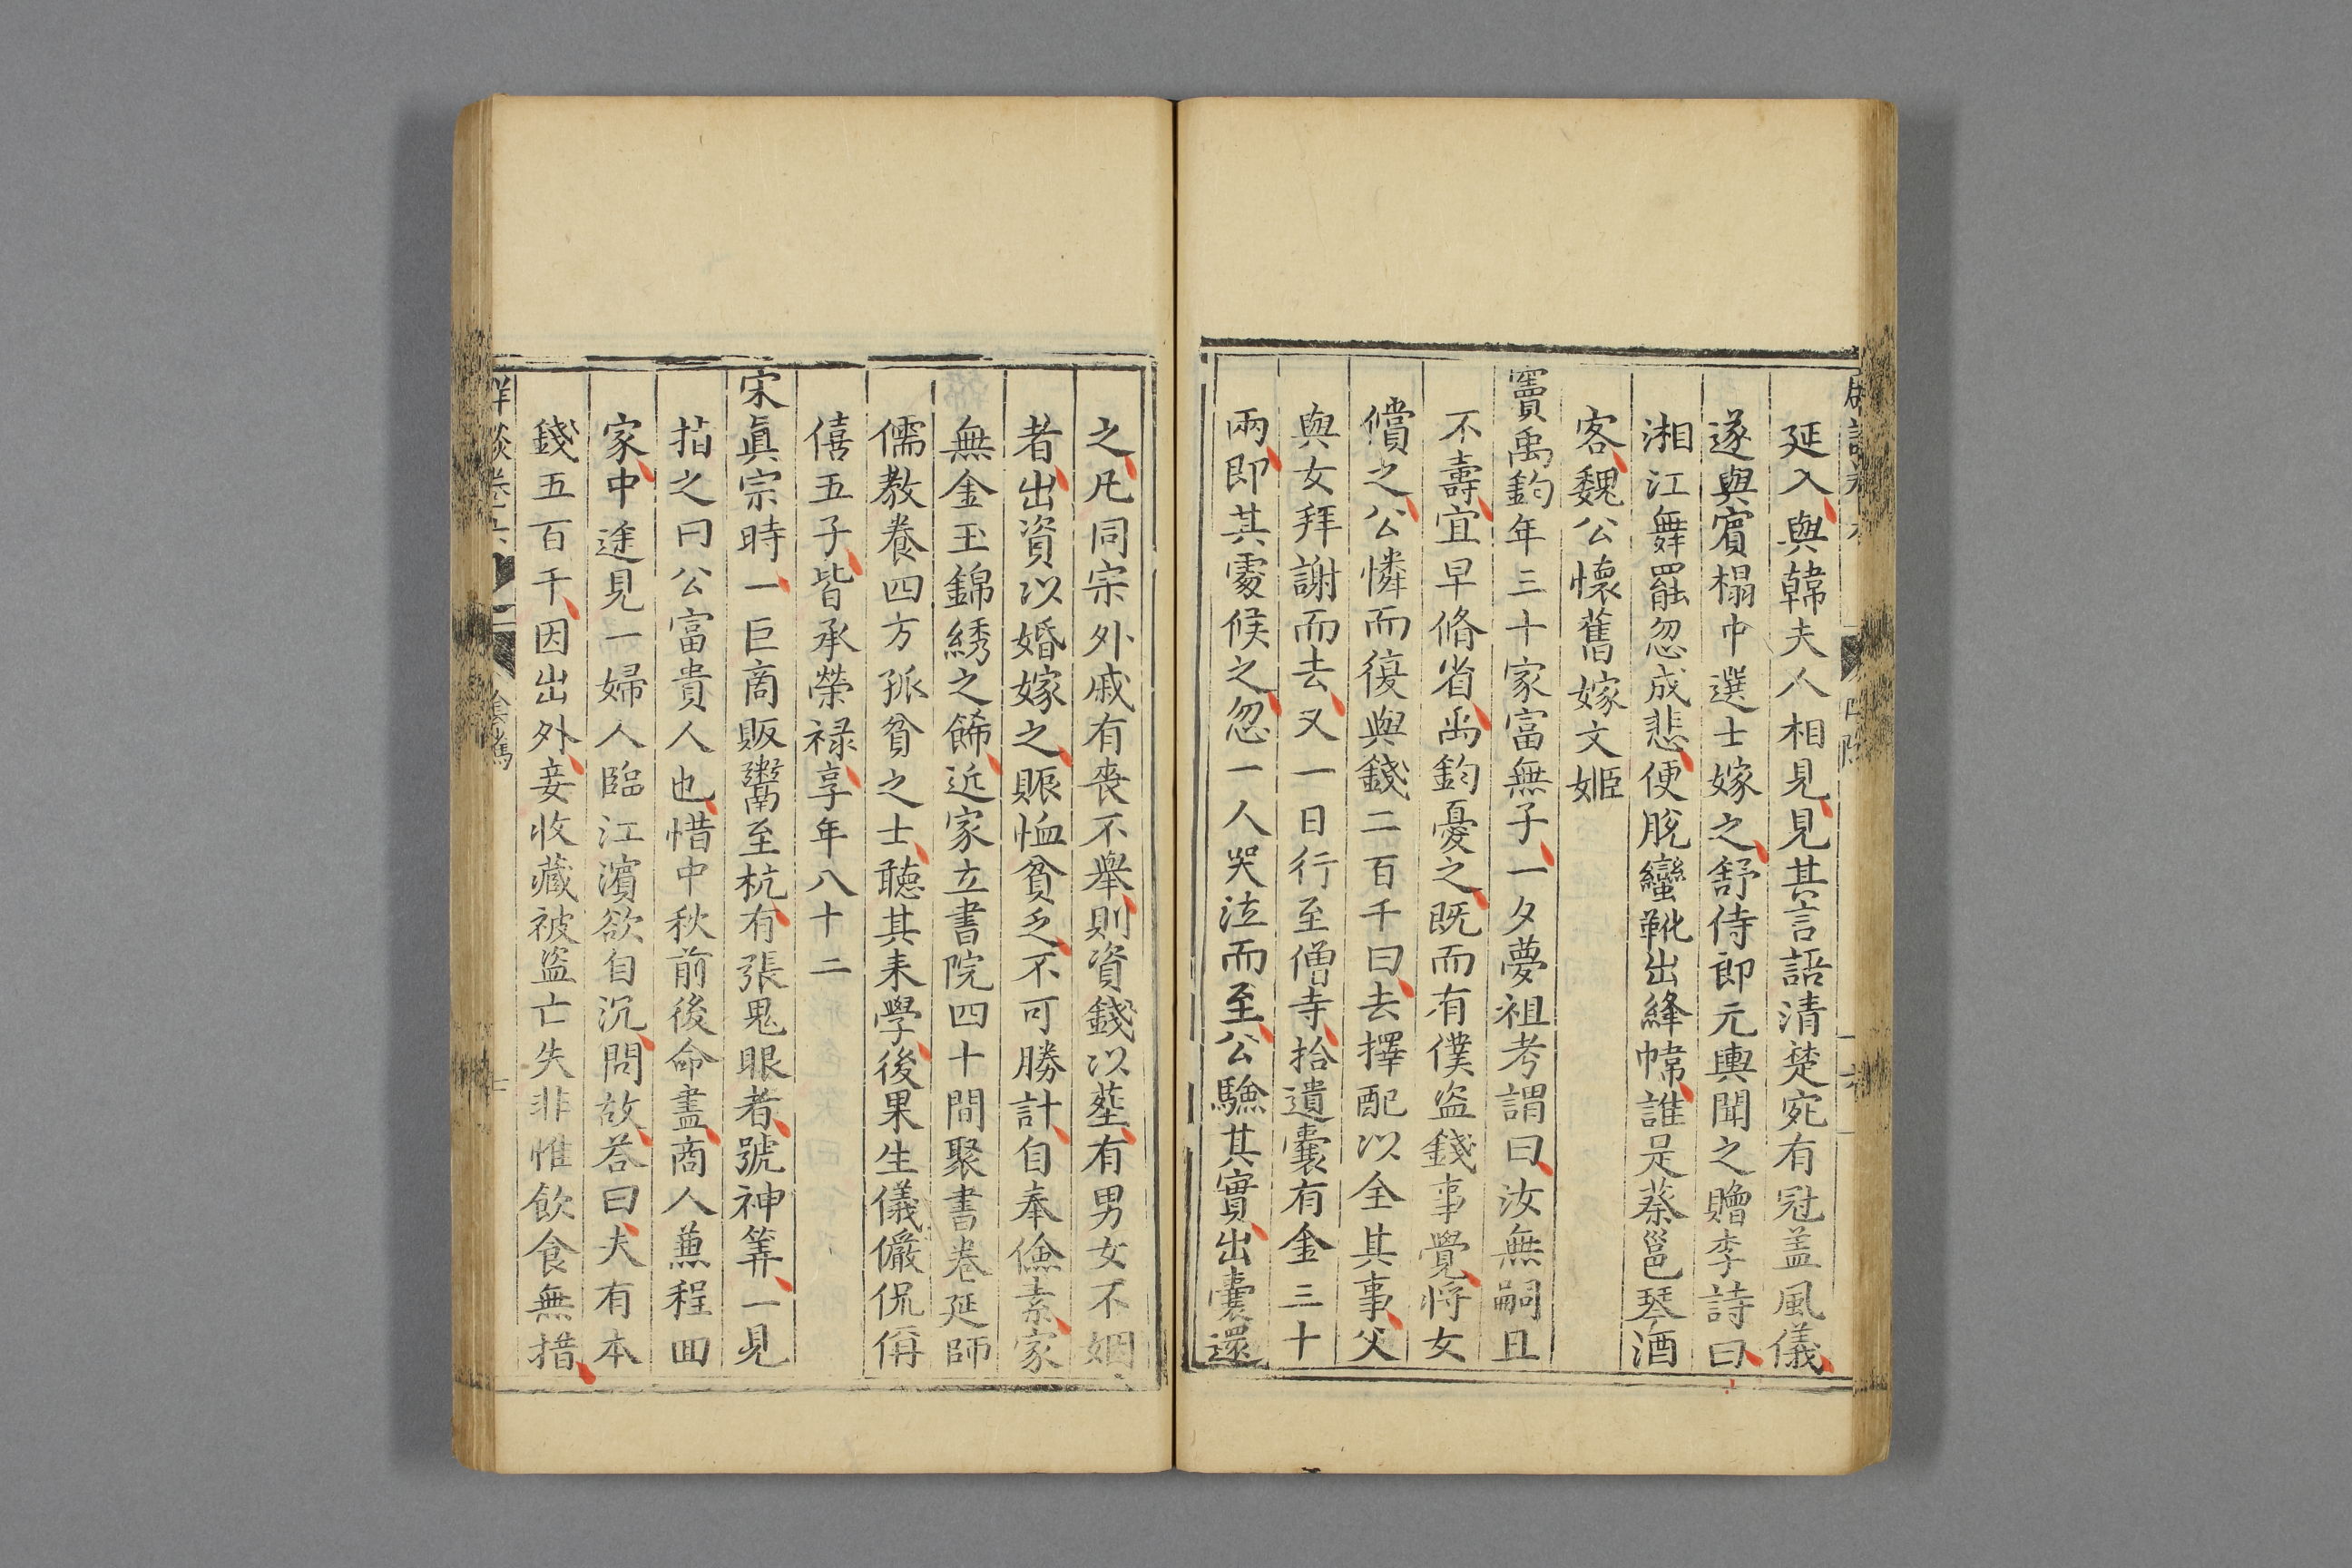 延入與韓夫人相見見其言語清楚宛有冠盖風儀
遂與賓榻中選士嫁之舒侍郎元輿聞之贈李詩曰
湘江舞罷忽成悲便脫蠻靴出絳幃誰是蔡邕琴酒
客魏公懷舊嫁文姬
竇禹鈞年三十家富無子一夕夢祖考謂曰汝無嗣且
不壽宜早脩省禹鈞憂之既而有僕盗錢事覺將女
償之公憐而復與錢二百千曰去擇配以全其事父
與女拜謝而去又一日行至僧寺拾遺囊有金三十
兩即其䖏候之忽一人哭泣而至公驗其實出囊還
之凡同宗外戚有喪不舉則資錢以塟有男女不姻
者出資以婚嫁之賑恤貧乏不可勝計自奉儉素家
無金玉錦綉之餙近家立書院四十間聚書卷延師
儒教養四方孤貧之士聽其来學後果生儀儼侃偁
僖五子皆承榮禄享年八十二
宋眞宗時一巨商販鬻至杭有張鬼眼者號神筭一見
指之曰公富貴人也惜中秋前後命盡商人兼程回
家中途見一婦人臨江濱欲自沉問故荅曰夫有本
錢五百千因出外妾收藏被盗亡失非惟飲食無措